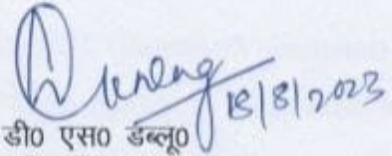 18/8/2023
डी० एस० डब्लू०